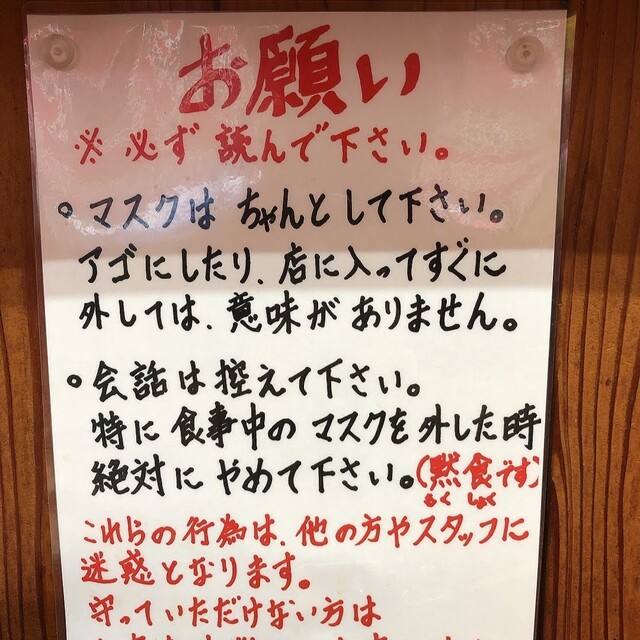 お願い
※必ず読んで下さい。
○マスクはちゃんとして下さい。
アゴにしたり、店に入ってすぐに
外しては、意味がありません。
○会話は控えて下さい。
特に食事中のマスクを外した時
絶対にやめて下さい。(黙食です)
もくしょく
これらの行為は、他の方やスタッフに
迷惑となります。
守っていただけない方は